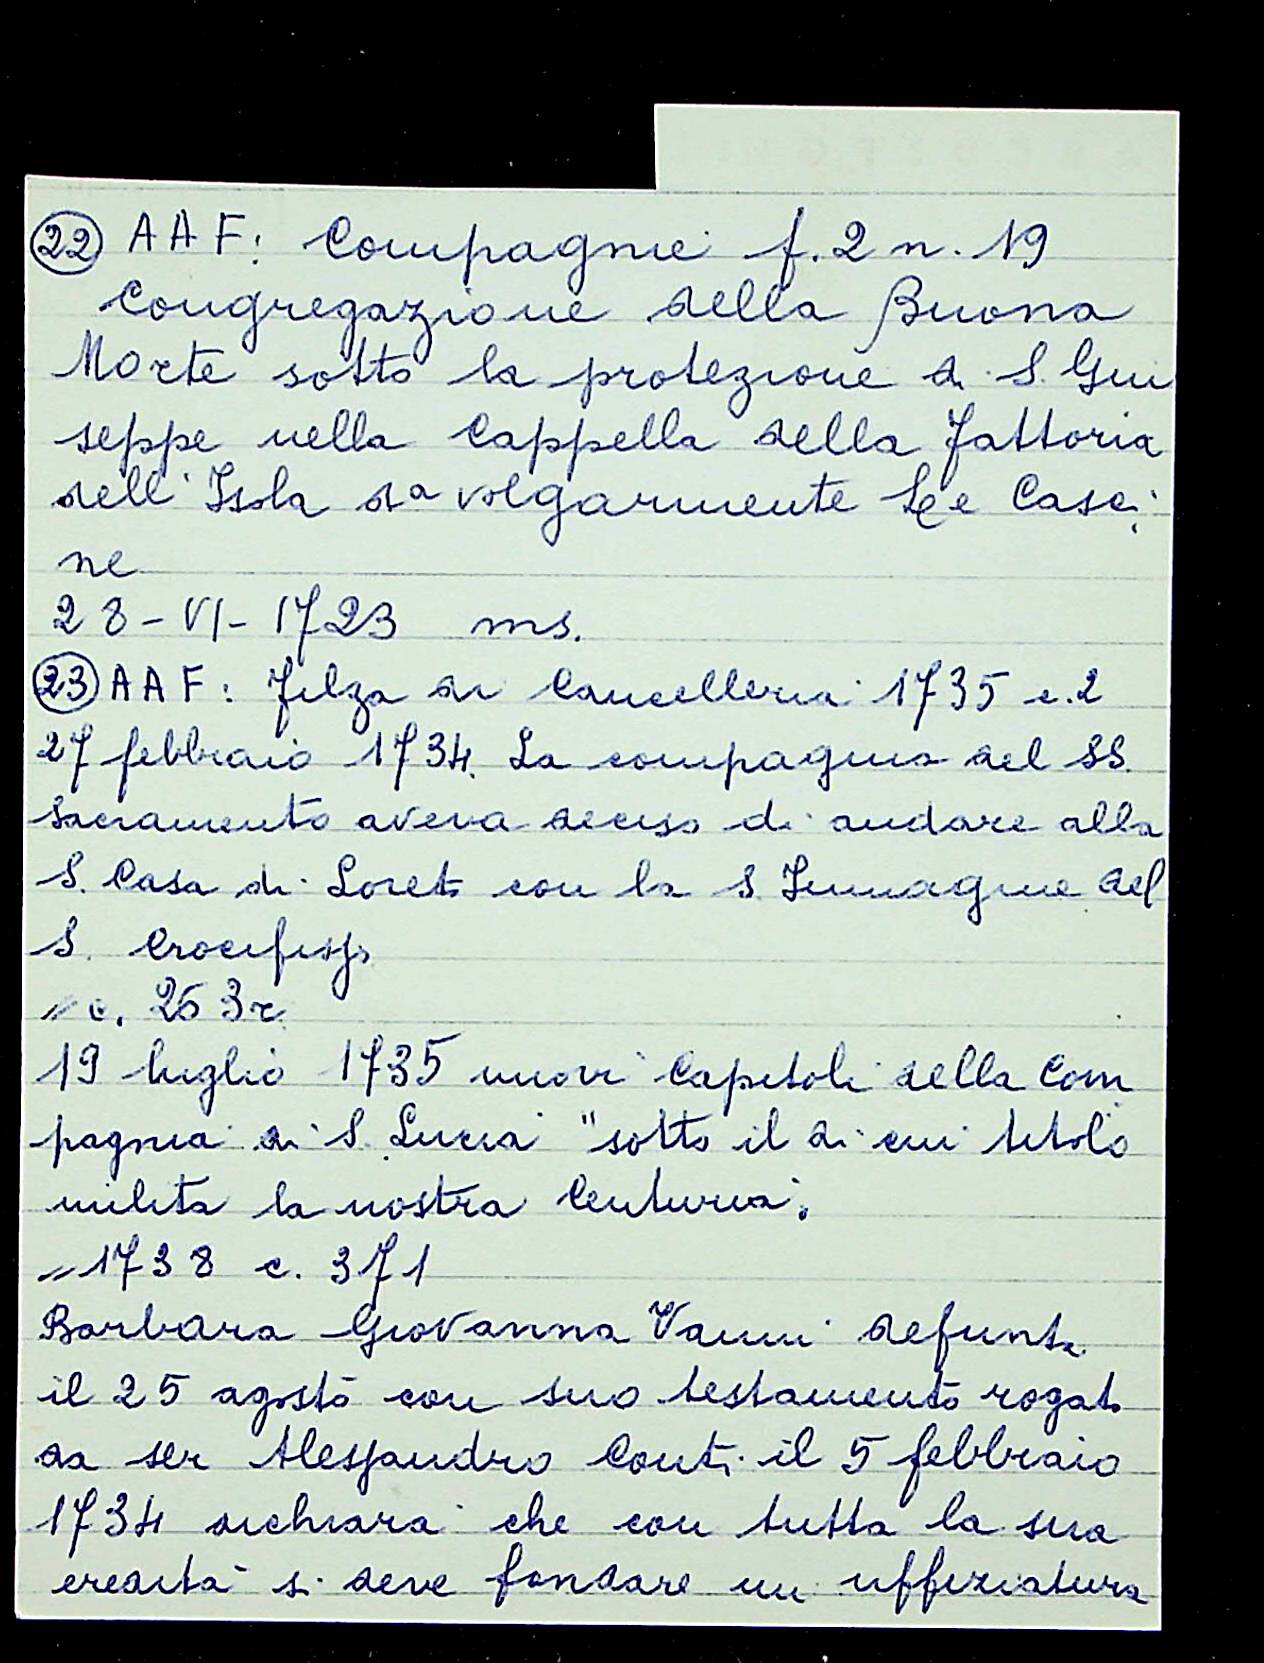 22 AAF: Compagnie f. 2 n. 19
Congregazione della Buona
Morte sotto la protezione di S. Giu
seppe nella Cappella della fattoria
dell'Isola da volgarmente Le Casci
ne
28-VI-1723 ms.
23 AAF: Filza di Cancelleria 1735 c. 2
27 febbraio 1734. La compagnia del SS.
Sacramento aveva deciso di andare alla
S. Casa di Loreto con la S. Immagine del
S. Crocifisso
" c. 263r
19 luglio 1735 nuovi Capitoli della Com
pagnia di S. Lucia "sotto il di cui titolo
milita la nostra Centuria".
" 1738 c. 371
Barbara Giovanna Vanni defunta
il 25 agosto con suo testamento rogato
da ser Alessandro Conti il 5 febbraio
1734 dichiara che con tutta la sua
eredità si deve fondare un uffiziatura